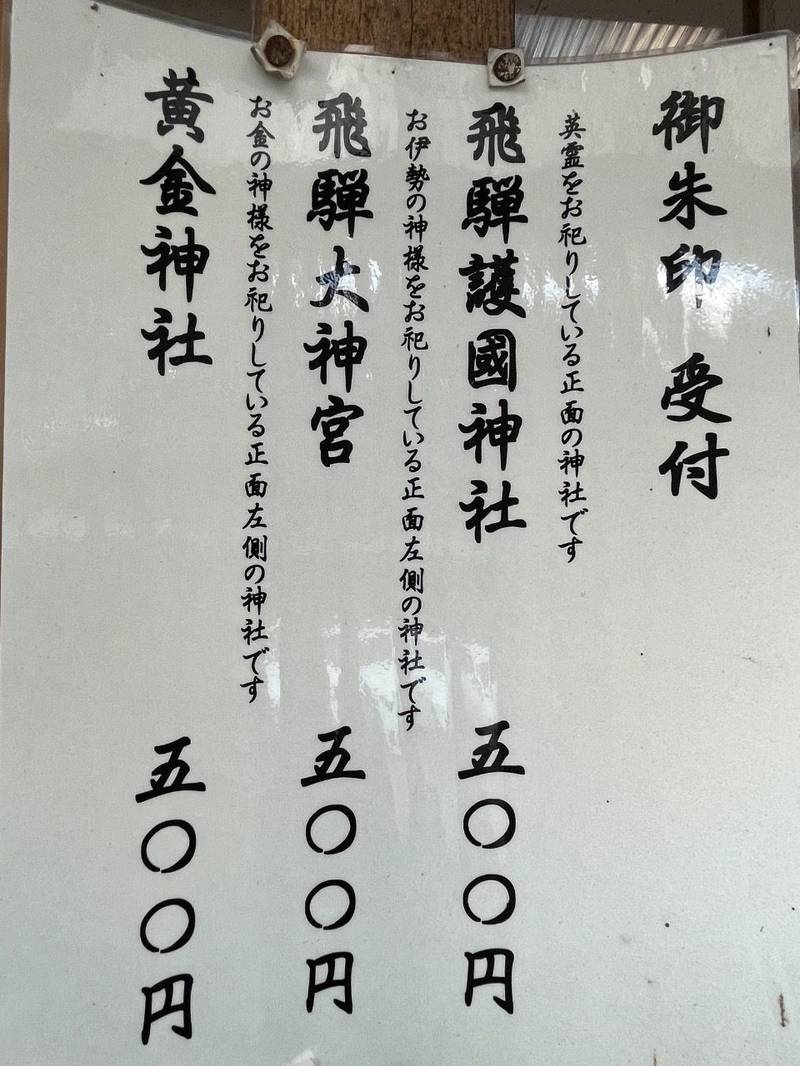 御朱印 受付
英霊をお祀りしている正面の神社です
飛騨護國神社 五〇〇円
お伊勢の神様をお祀りしている正面左側の神社です
飛騨大神宮 五〇〇円
お金の神様をお祀りしている正面左側の神社です
黄金神社 五〇〇円